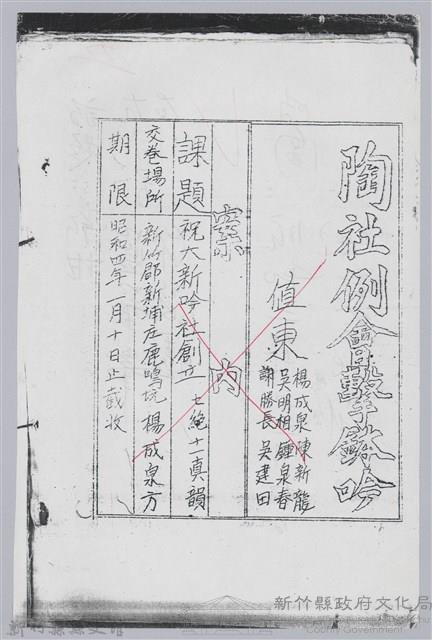 陶社例會擊鉢吟
值東
楊成泉 陳新龍
吳明相 鍾泉春
謝勝長 吳建田
案內
課題 祝大新吟社創立 七絕十一真韻
交卷場所 新竹郡新埔庄鹿鳴坑 楊成泉方
期限 昭和四年一月十日止截收
新竹縣政府文化局
County Government